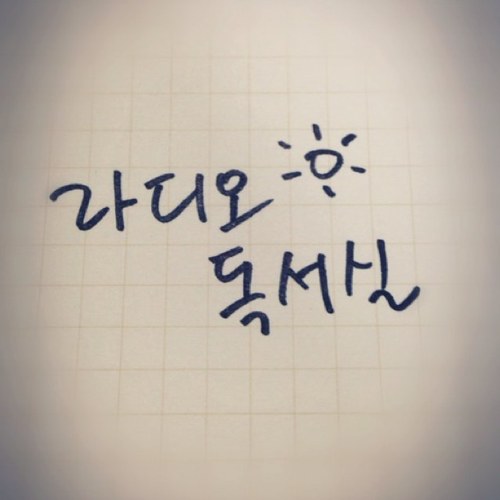 라디오
독서실